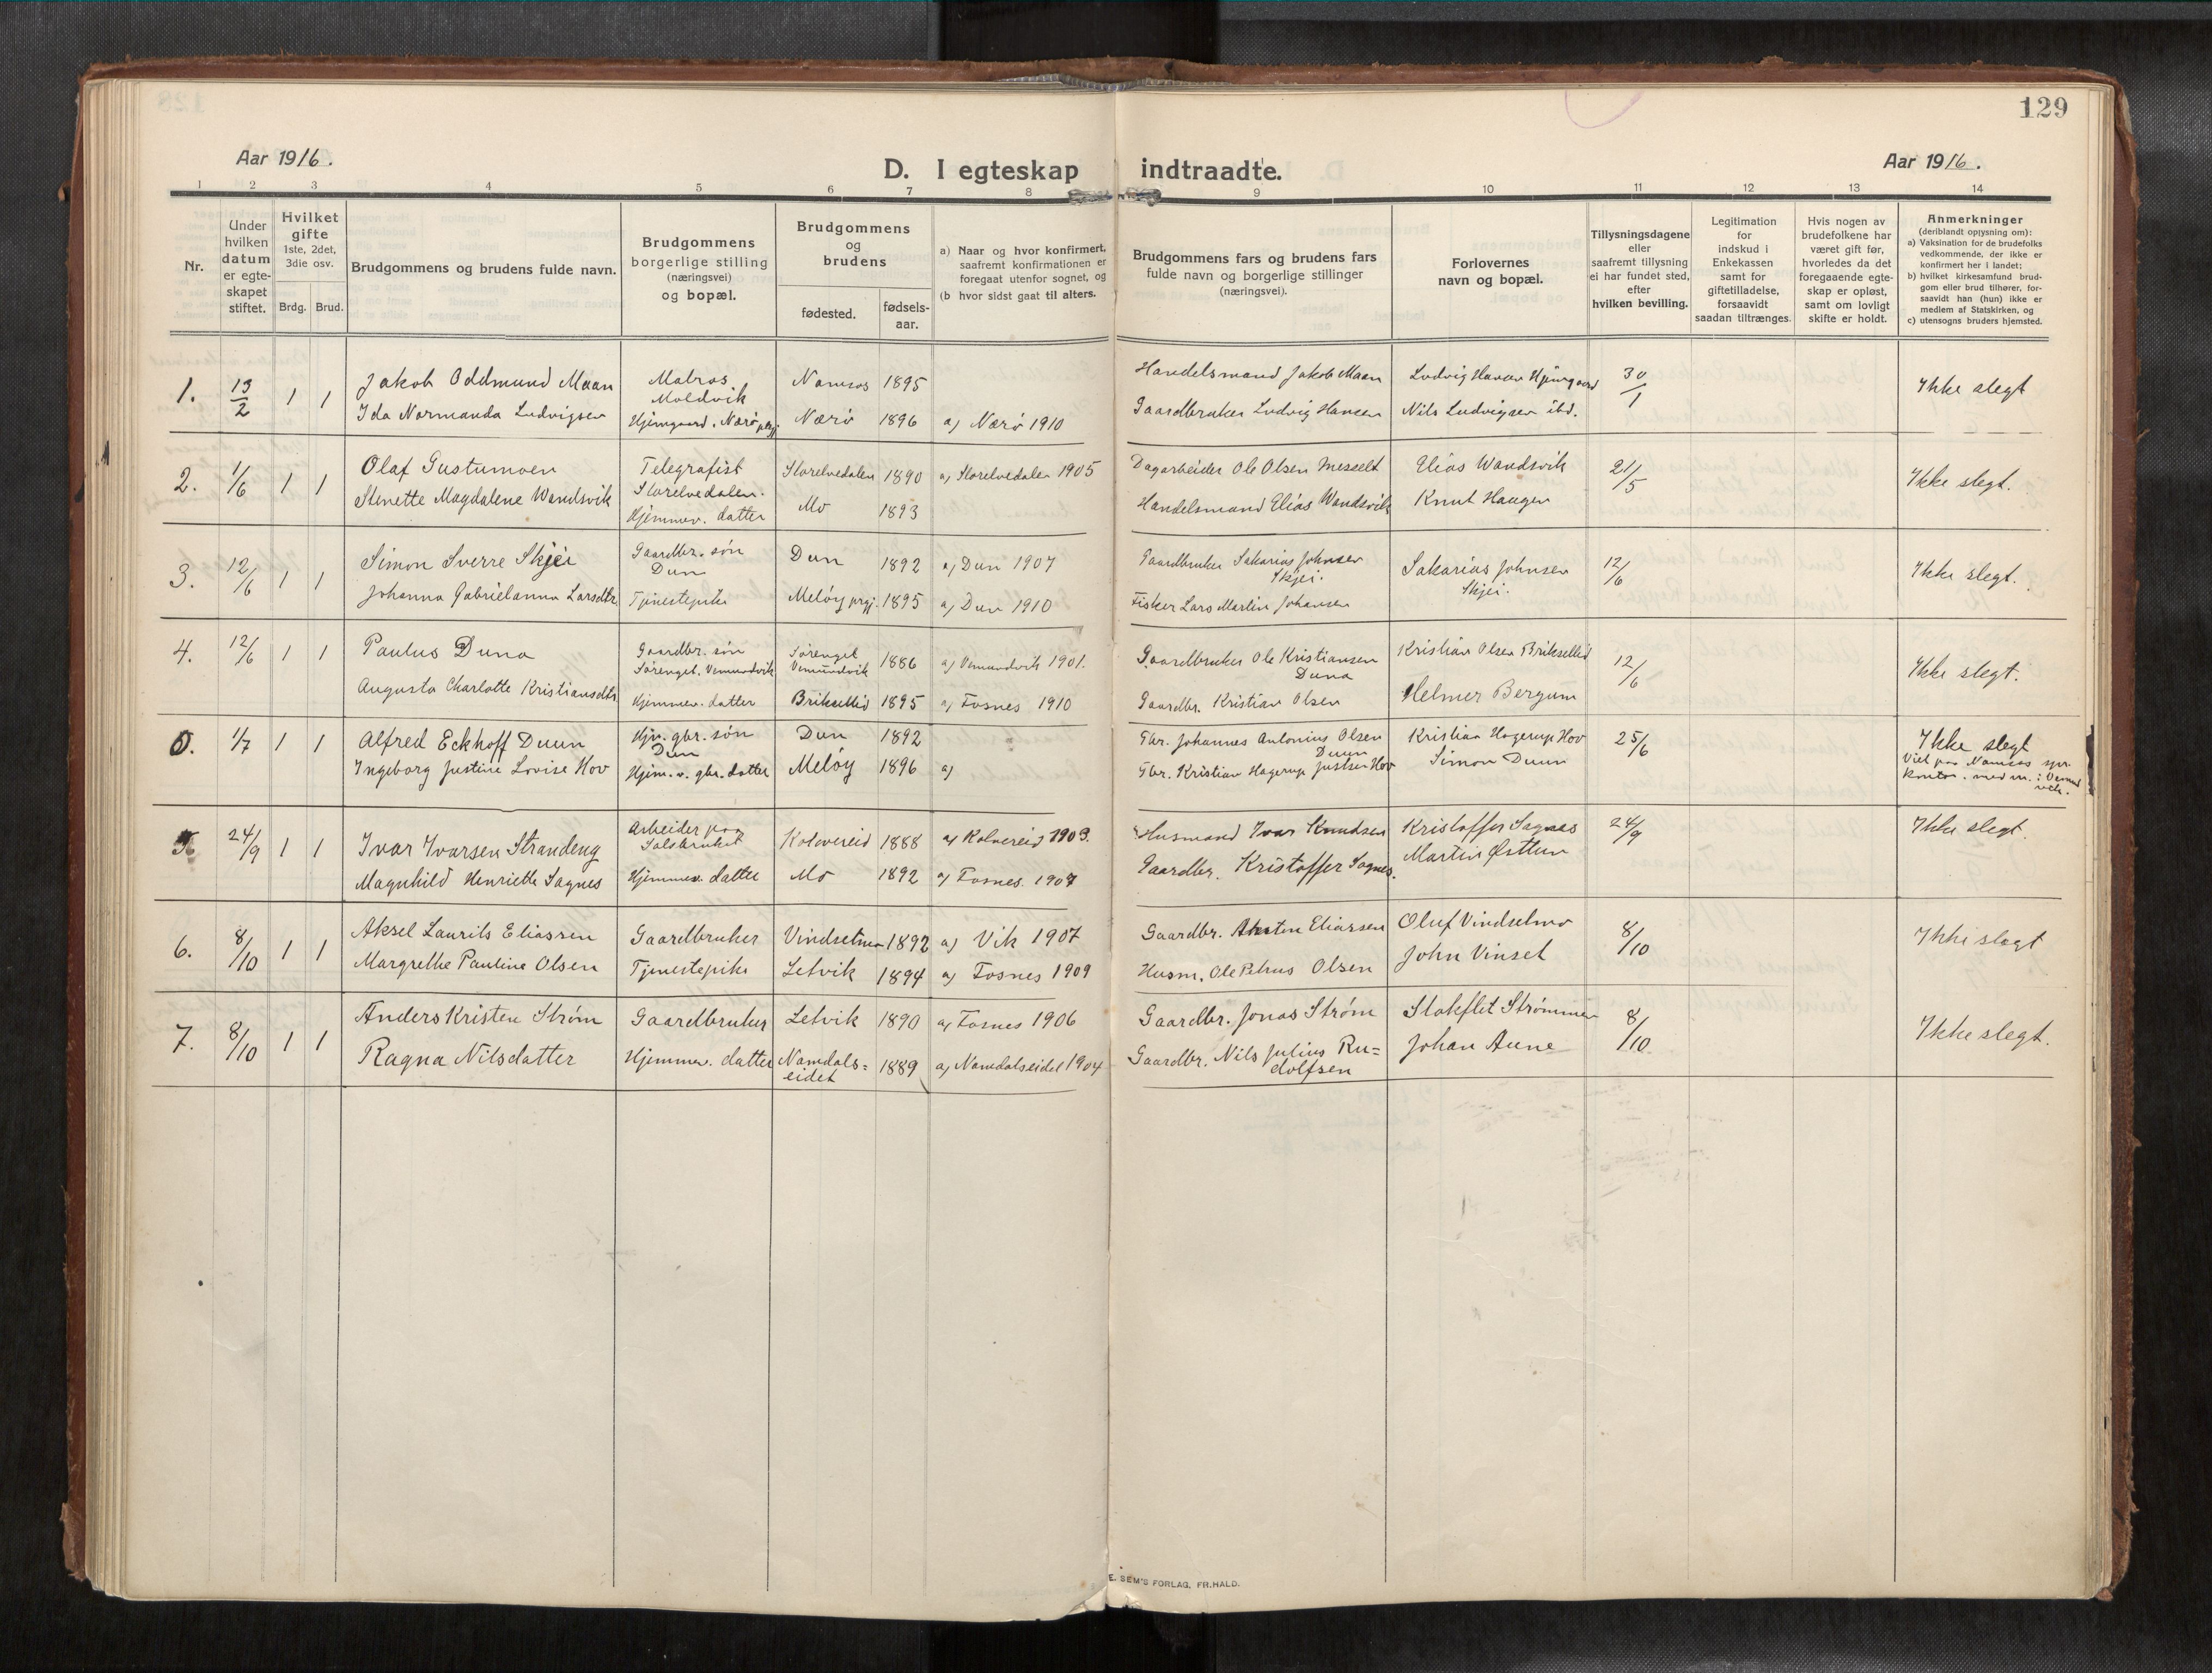 129
Aar 1916.
D. I egteskap indtraadte.
Aar 1916.
1 2 3 4 5 6 7 8 9 10 11 12 13 14
Nr.
Under hvilken datum er egte-skapet stiftet.
Hvilket gifte
1ste, 2det, 3die osv.
Brdg. Brud.
Brudgommens og brudens fulde navn.
Brudgommens borgerlige stilling (næringsvei) og bopæl.
Brudgommens og brudens
fødested.
fødsels-aar.
a) Naar og hvor konfirmert, saafremt konfirmationen er foregaat utenfor sognet, og
(b hvor sidst gaat til alters.
Brudgommens fars og brudens fars fulde navn og borgerlige stillinger (næringsvei).
Forlovernes navn og bopæl.
Tillysningsdagene eller saafremt tillysning ei har fundet sted, efter hvilken bevilling.
Legitimation for indskud i Enkekassen samt for giftetilladelse, forsaavidt saadan tiltrænges.
Hvis nogen av brudefolkene har været gift før, hvorledes da det foregaaende egte-skap er opløst, samt om lovligt skifte er holdt.
Anmerkninger
(deriblandt opiysning om):
a) Vaksination for de brudefolks vedkommende, der ikke er konfirmert her i landet;
b) hvilket kirkesamfund brud-gom eller brud tilhører, for-saavidt han (hun) ikke er medlem af Statskirken, og
c) utensogns bruders hjemsted.
1. 13/2 1 1 Jakob Oddmund Maan Matros Moldvik Namsos 1895 Handelsmand Jakob Maan Ludvig Hansen Hjemgaard 30/1 Ikke slegt
Ida Normanda Ludvigsen Hjemgaard, Nærø prgj. Nærø 1896 a) Nærø 1910 Gaardbruker Ludvig Hansen Nils Ludvigsen ibd.
2. 1/6 1 1 Olaf Gustumoen Telegrafist Storelvedalen. Storelvedalen 1890 a) Storelvedalen 1905 Dagarbeider Ole Olsen Messelt Elias Wandsvik 21/5 Ikke slegt.
Stenette Magdalene Wandsvik Hjemmev. datter Mo 1893 Handelsmand Elias Wandsvik Knut Haugen
3. 12/6 1 1 Simon Sverre Skjei Gaardbr. søn Dun Dun 1892 a) Dun 1907 Gaardbruker Sakarias Johnsen Skjei. Sakarias Johnsen Skjei. 12/6 Ikke slegt.
Johanna Gabrielanna Larsdtr. Tjenestepike Meløy prgj. 1895 a) Dun 1910 Fisker Lars Martin Johansen
4. 12/6 1 1 Paulus Duna Gaardbr. søn Sørenget, Vemundvik Sørenget Vemundvik 1886 a) Vemundvik 1901. Gaardbruker Ole Kristiansen Duna Kristian Olsen Briksellid 12/6 Ikke slegt.
Augusta Charlotte Kristiansdtr. Hjemmev. datter Briksellid 1895 a) Fosnes 1910 Gaardbr. Kristian Olsen Helmer Bergum
0. 1/7 1 1 Alfred Eckhoff Duun Hjv. gbr. søn Dun Dun 1892 Gbr. Johannes Antonius Olsen Duun Kristian Hagerup Hov 25/6 Ikke slegt
Ingeborg Justine Lovise Hov Hjem.v. gbr. datter Meløy 1896 a) Gbr. Kristian Hagerup Justsen Hov Simon Duun Viet paa Namsos kontor
24/9 1 1 Ivar Ivarsen Strandeng Arbeider paa Salsbruket Kolvereid 1888 a) Kolvereid 1903. Husmand Ivar Knudsen Kristoffer Sagnes 24/9 Ikke slegt.
Magnhild Henriette Sagnes Hjemmev. datter Mo 1892 a) Fosnes. 1907 Gaardbr. Kristoffer Sagnes. Martin Østtun
6. 8/10 1 1 Aksel Laurits Eliassen Gaardbruker Vindsetmo 1892 a) Vik 1907 Gaardbr. Eliassen Oluf Vindsetmo 8/10 Ikke slegt
Margrethe Pauline Olsen Tjenestepike Letvik 1894 a) Fosnes 1909 Husm. Ole Petrus Olsen John Vinset
7. 8/10 1 1 Anders Kristen Strøm Gaardbruker Letvik 1890 a) Fosnes 1906 Gaardbr. Jonas Strøm Stokflet Strømmen 8/10 Ikke slegt.
Ragna Nilsdatter Hjemmev. datter Namdals=eidet 1889 a) Namdalseidet 1904 Gaardbr. Nils Julius Ru=dolfsen Johan Aune
E. SEM'S FORLAG, FR.HALD.